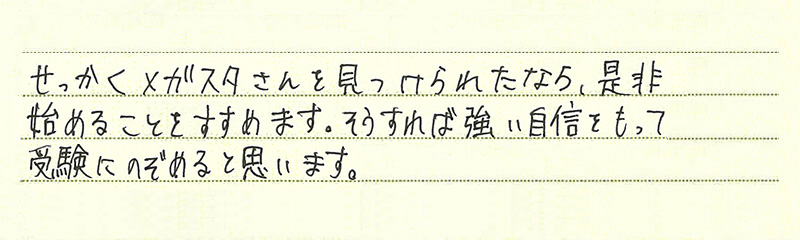 せっかくメガスタさんを見つけられたなら、是非
始めることをすすめます。そうすれば強い自信をもって
受験にのぞめると思います。